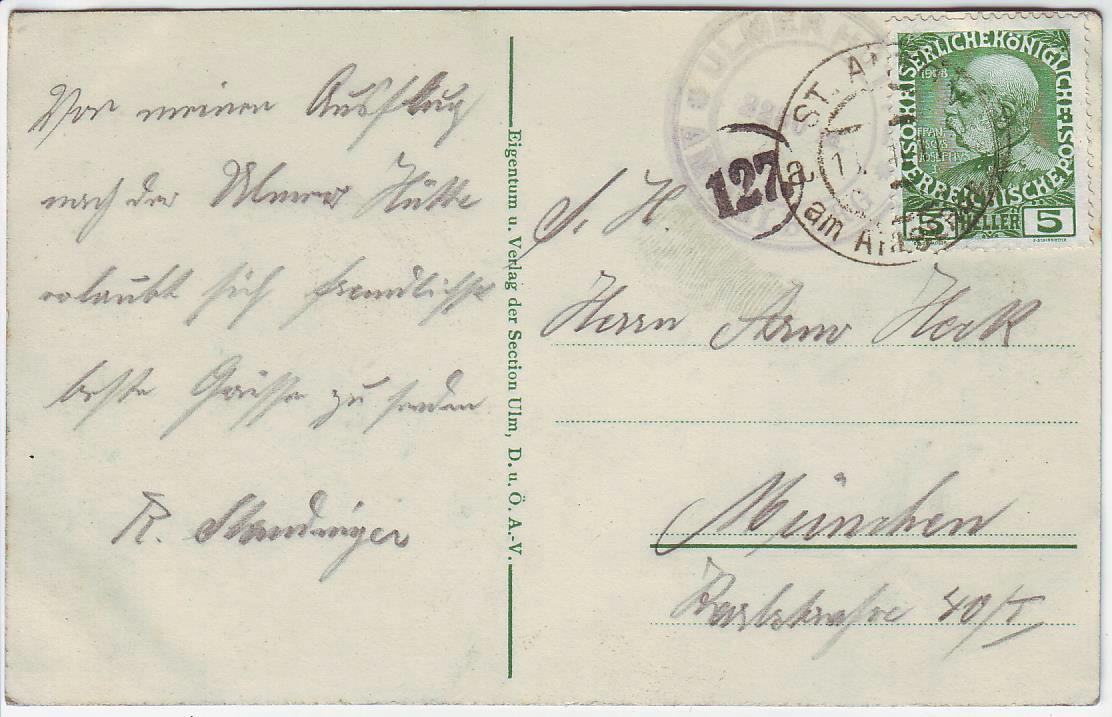 Von meinem Ausflug
nach der Ulmer Hütte
erlaubt sich freundlichst
beste Grüsse zu senden
R. Staudinger
Eigentum u. Verlag der Section Ulm, D. u. Ö. A.-V.
ULMER H
127
ST. AN
am ARLBERG
a
1908
KAISERLICHE KÖNIGLICHE
ÖSTERREICHISCHE POST
FRAN
CISCVS
IOSEPHVS
5 HELLER 5
S. H.
Herrn Arno Heck
München
Karlstrasse 40/I